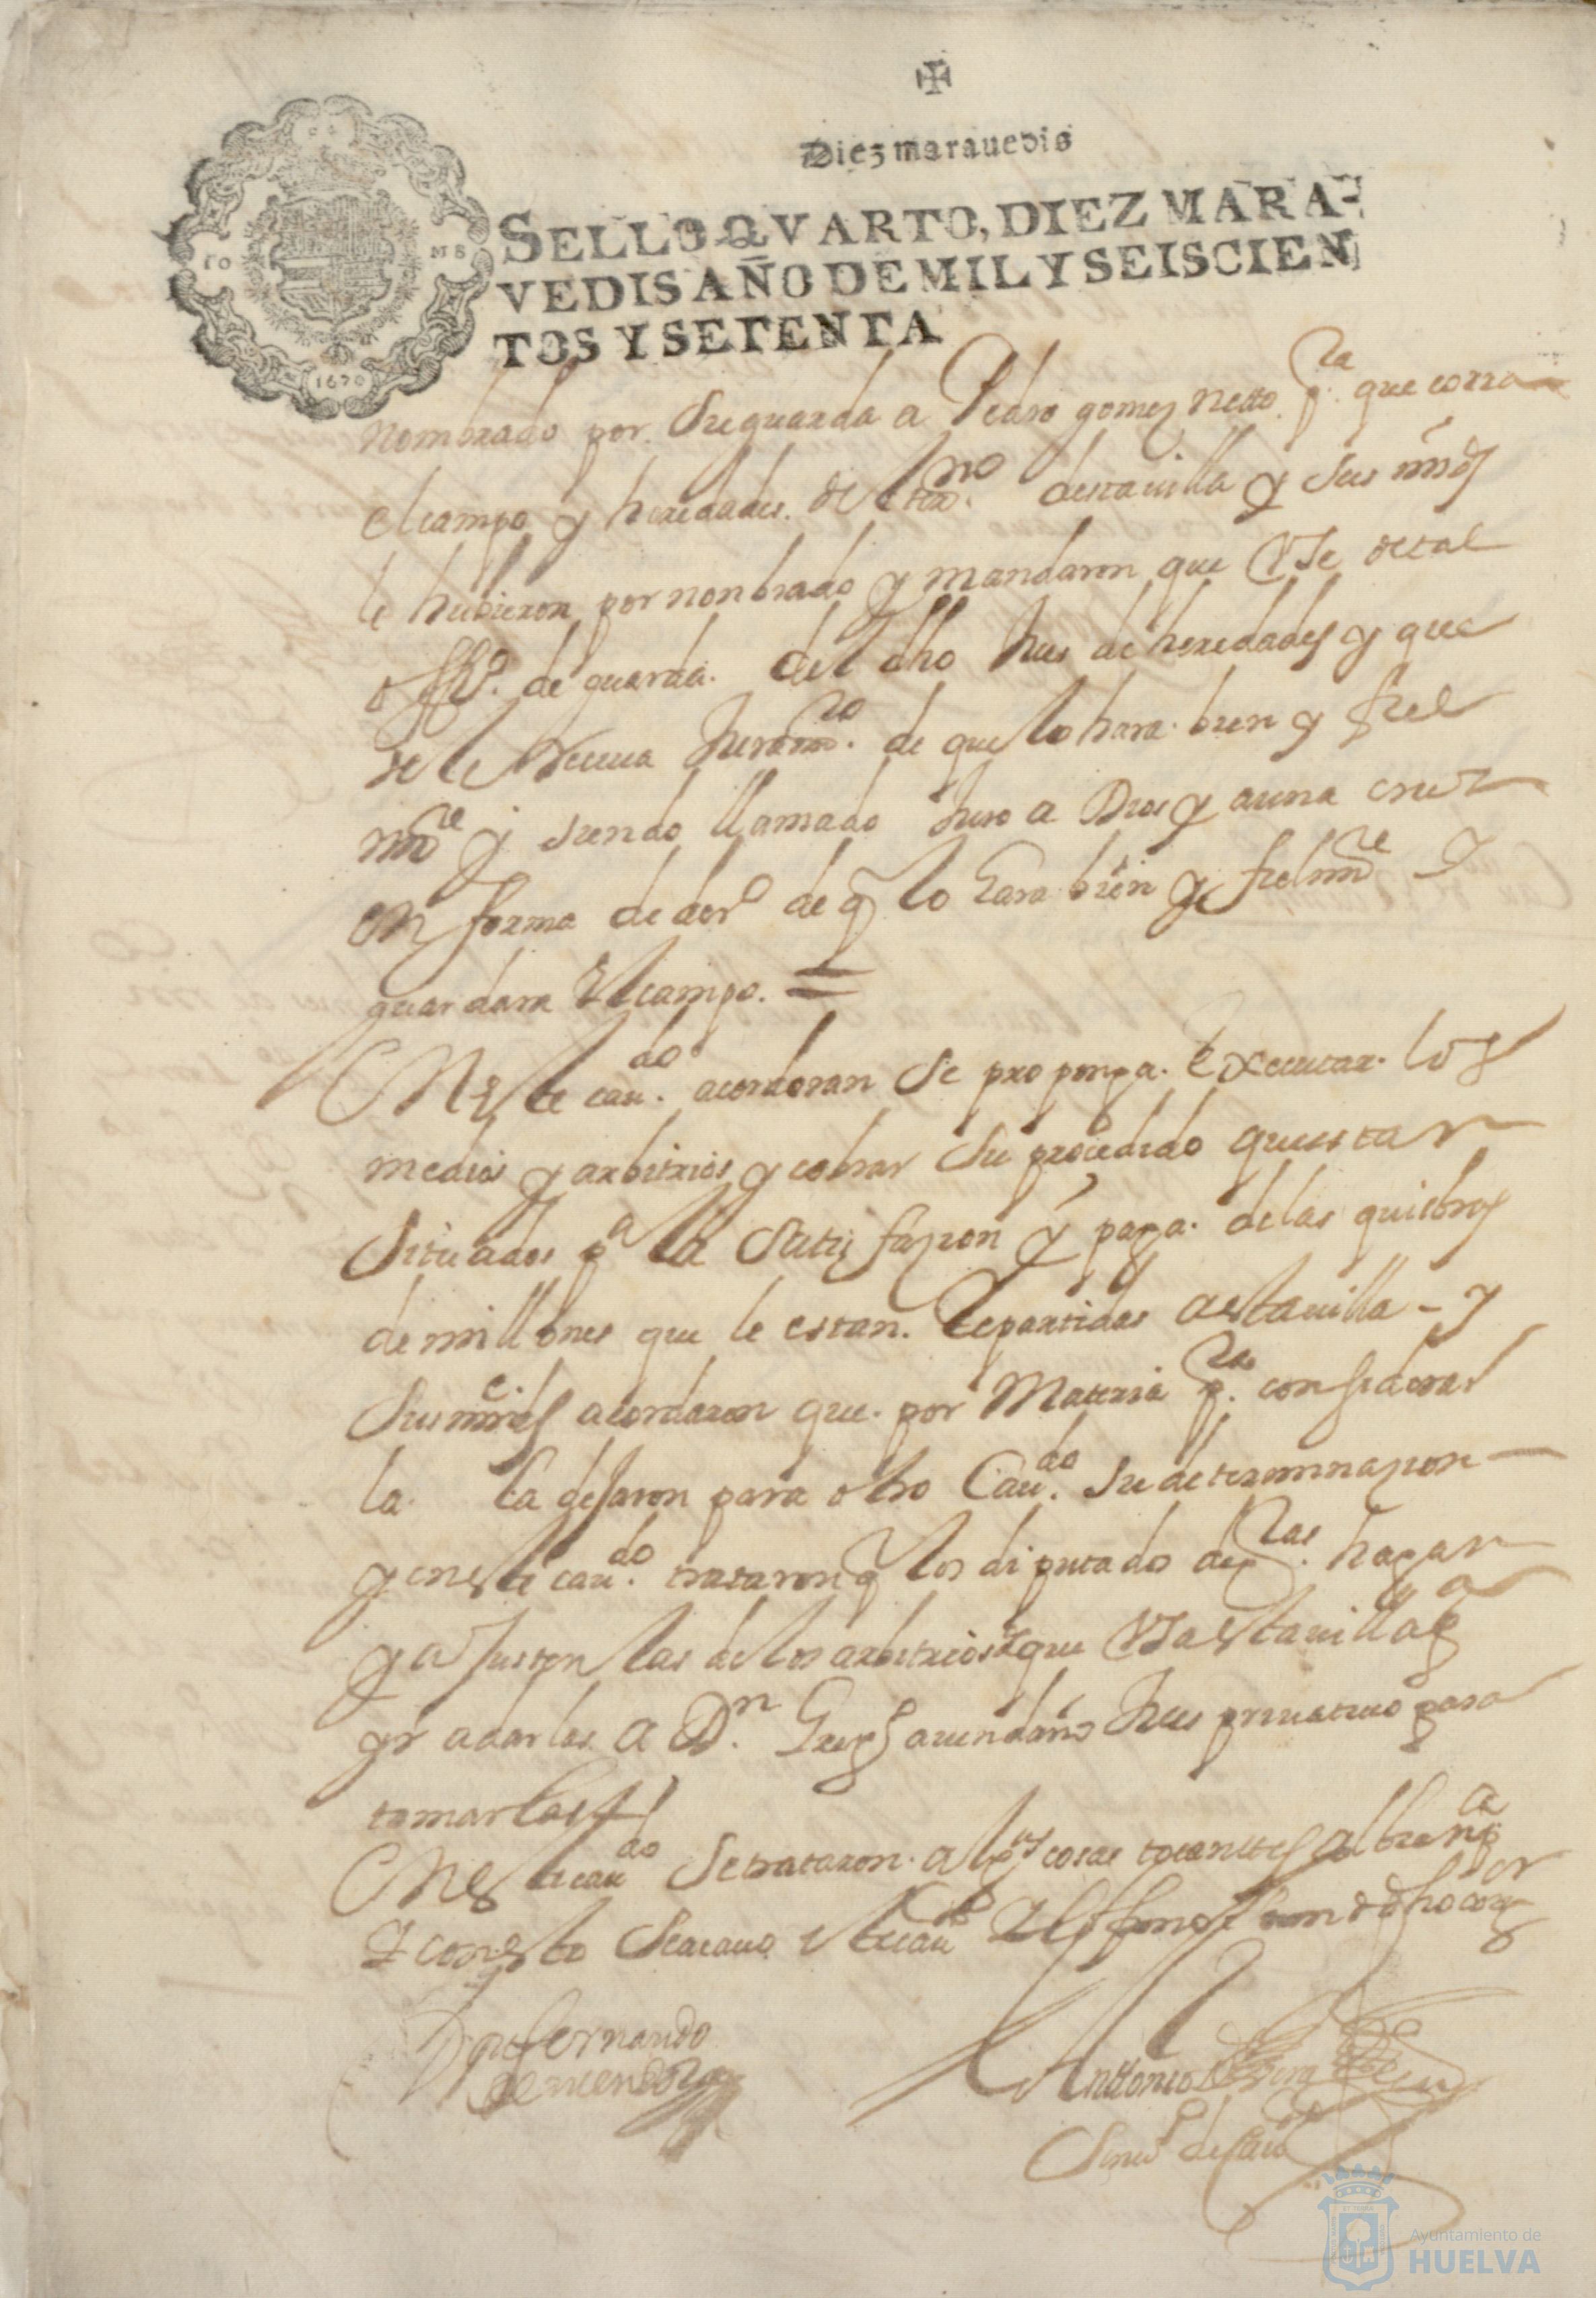 ✠
Diez marauedis
SELLO QVARTO, DIEZ MARA-
VEDIS AÑO DE MIL Y SEISCIEN
TOS Y SETENTA
10 MS
1670
nombrado por su guarda a Pedro gomez netto pra que corra
el campo y heredades del termno desta uilla y sus mds
le hubieron por nonbrado y mandaron que Vse de tal
offo. de guarda del dho de heredades y que
se le Reciua Juramto. de que lo hara bien y fiel
mte y siendo llamado Juro a Dios y a una cruz
en forma de dero de q lo hara bien y fielmte y
guardara El campo. =
En Este caudo. acordaran Se proponga Executar los
medios y arbitrios y cobrar su prosedido questan
Situados pa la Satisfazion y paga de las quiebras
de millones que le estan Repartidas a esta uilla - y
Sus mrdes acordaron que por Materia pra considerar
la la dejaron para otro Caudo. su determinazion
y en este caudo. trataron q los diputados de qtas. hagan
y ajusten las de los arbitrios que Vsa esta uilla
yr a darlas a Dn. auendaño Jues priuatiuo para
tomarlas
En Este caudo Se trataron algas cosas tocantes al bien
Y con esto Se acauo este caudo Y lo firmo el dho cor
Don fernando
de mendoza
Antonio
Scriuo de Cauo
Ayuntamiento de
HUELVA